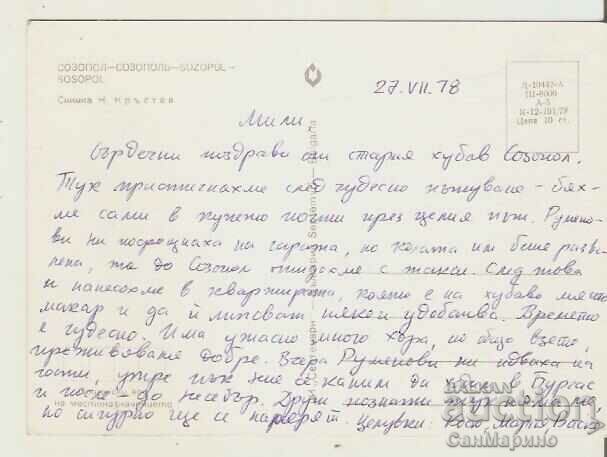 СОЗОПОЛ—СОЗОПОЛЬ—SOZOPOL—
SOSOPOL
Снимка Н. Кръстев
27.VII.78
Д-10442-А
ПІ-6000
А-5
К-12-191/78
Цена 10 ст.
Мили
Сърдечни поздрави от стария хубав Созопол.
Тук пристигнахме след чудесно пътуване - бях-
ме сами в купето почти през целия път. Румено-
ви ни посрещнаха на гарата, но колата им беше разва-
лена, та до Созопол отидохме с такси. След това
се нанесохме в квартирата, която е на хубаво място
макар и да ѝ липсват някои удобства. Времето
е чудесно. Има ужасно много хора, но общо взето,
преживяваме добре. Вчера Руменови ни идваха на
гости, утре пък ние се каним да ходим Бургас
и после - до Несебър. Други познати тук няма
но сигурно ще се намерят. Целувки: Росо, Мария
Септември
Bulgaria
на местоназначението
auction
СанМарино